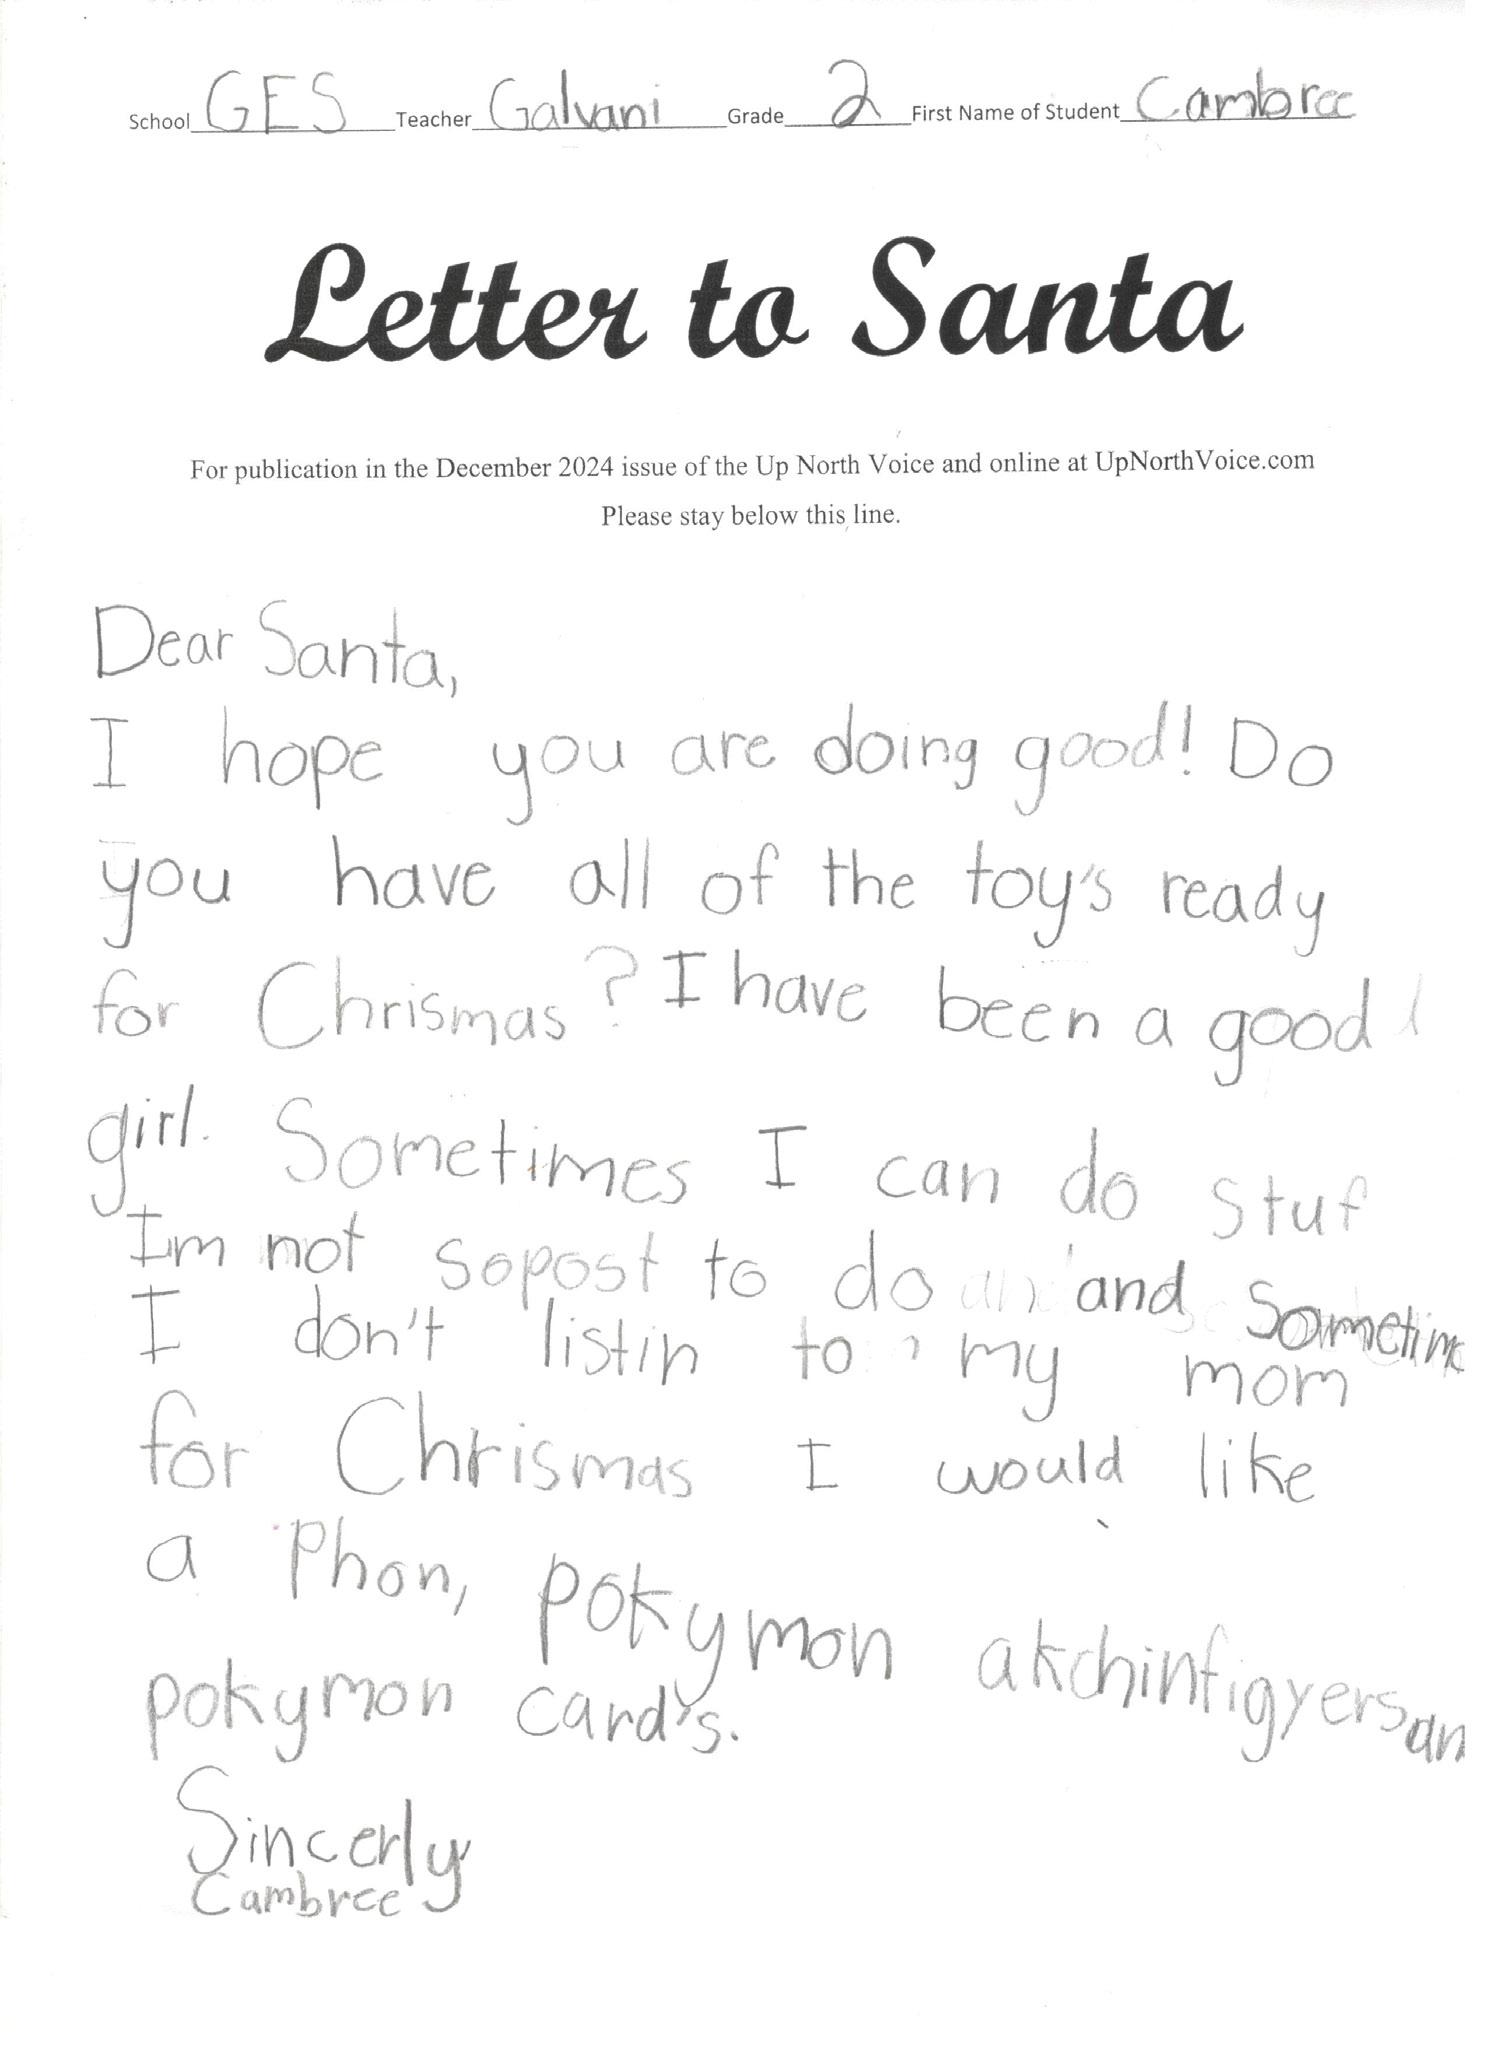 School GES Teacher Galvani Grade 2 First Name of Student Cambree
Letter to Santa
For publication in the December 2024 issue of the Up North Voice and online at UpNorthVoice.com
Please stay below this line.
Dear Santa,
I hope you are doing good! Do
you have all of the toy's ready
for Chrismas? I have been a good
girl. Sometimes I can do stuf
I'm not sopost to do and Sometim
I don't listin to my mom
for Chrismas I would like
a Phon, pokymon akchinfigyers an
pokymon card's.
Sincerly
Cambree